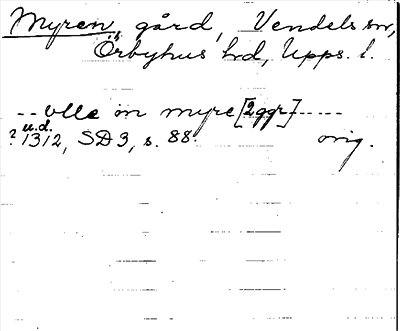 Myren, gård, Vendels sn,
Örbyhus hd, Upps. l.
-- olle in myre [2 ggr] -----
u.d.
? 1312, SD 3, s. 88. orig.